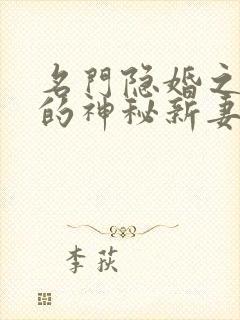 名門隐婚之
的神秘新妻
李荻